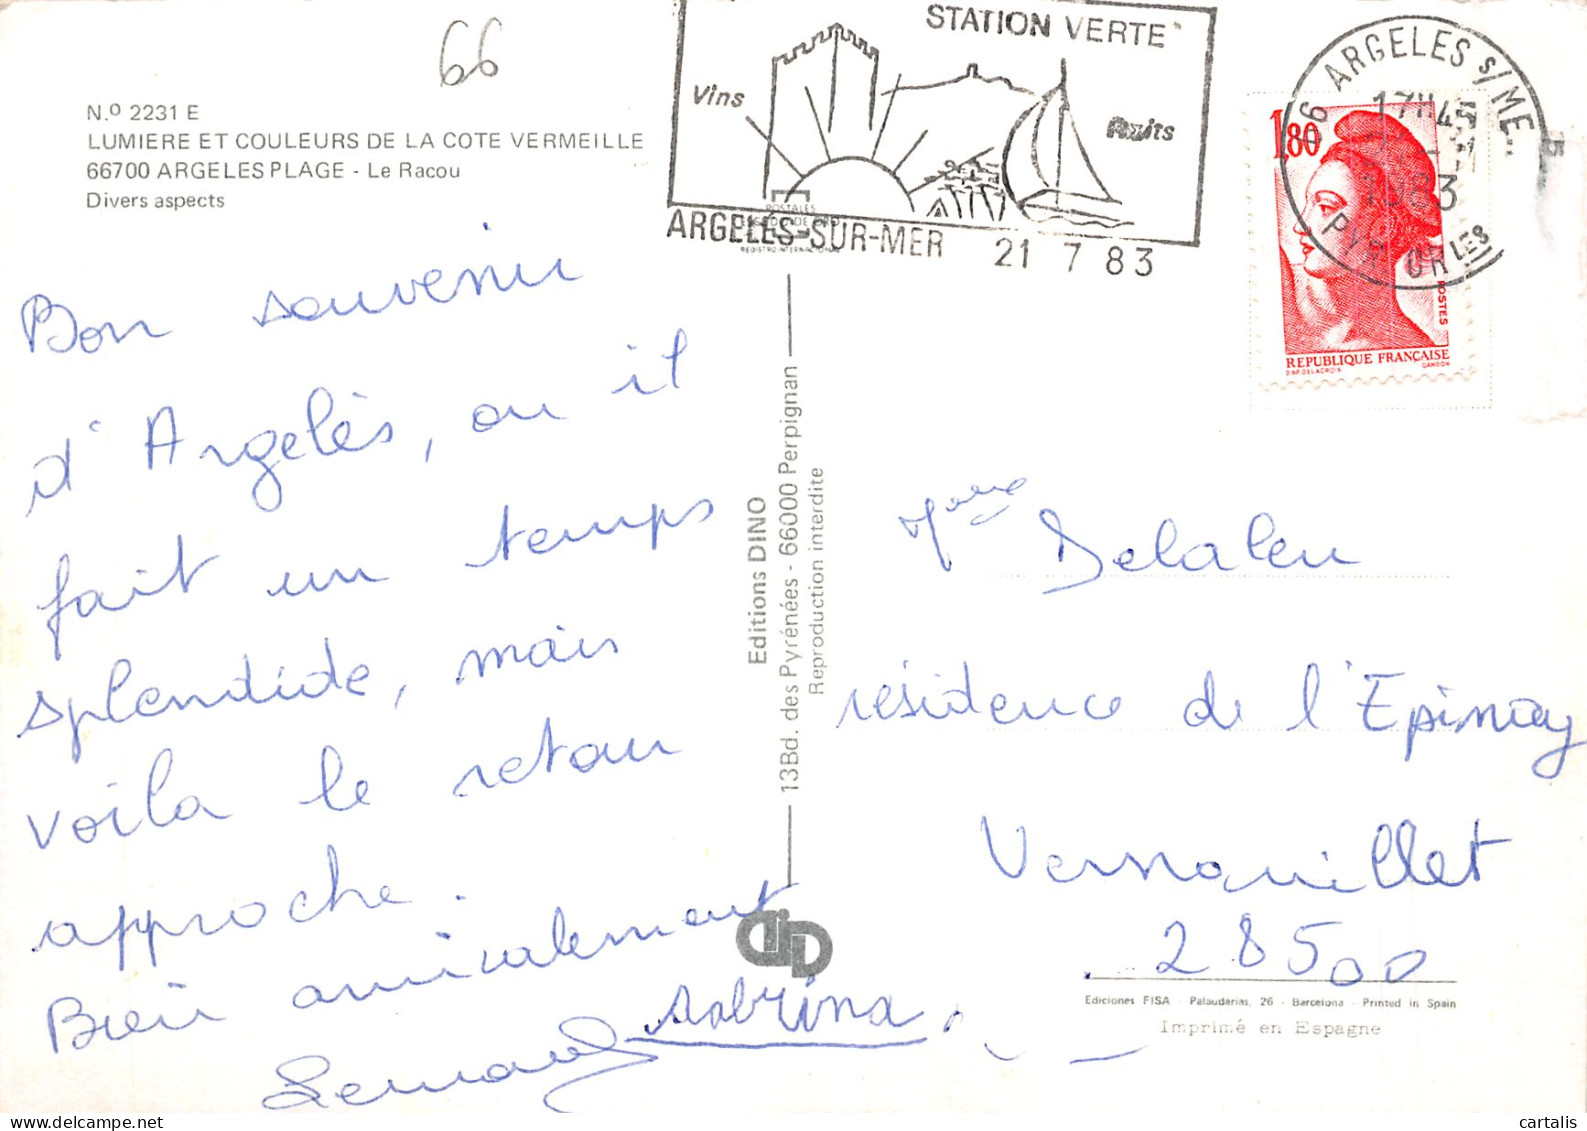 66
N.º 2231 E
LUMIERE ET COULEURS DE LA COTE VERMEILLE
66700 ARGELES PLAGE - Le Racou
Divers aspects
STATION VERTE
Vins
Fruits
ARGELÈS-SUR-MER 21 7 83
POSTALES
REGISTRO INTERNACIONAL
66 ARGELES S/MER
17H45
1983
PYR. ORLES
1,80
POSTES
REPUBLIQUE FRANÇAISE
D'AP. DELACROIX GANDON
Bon souvenir
d'Argelès, ou il
fait un temps
splendide, mais
voila le retour
approche.
Bien amicalement
Sabrina
Editions DINO
13Bd. des Pyrénées - 66000 Perpignan
Reproduction interdite
Mme Delaleu
résidence de l'Epinay
Vernouillet
28500
Ediciones FISA - Palauderias, 26 - Barcelona - Printed in Spain
Imprimé en Espagne
cartalis